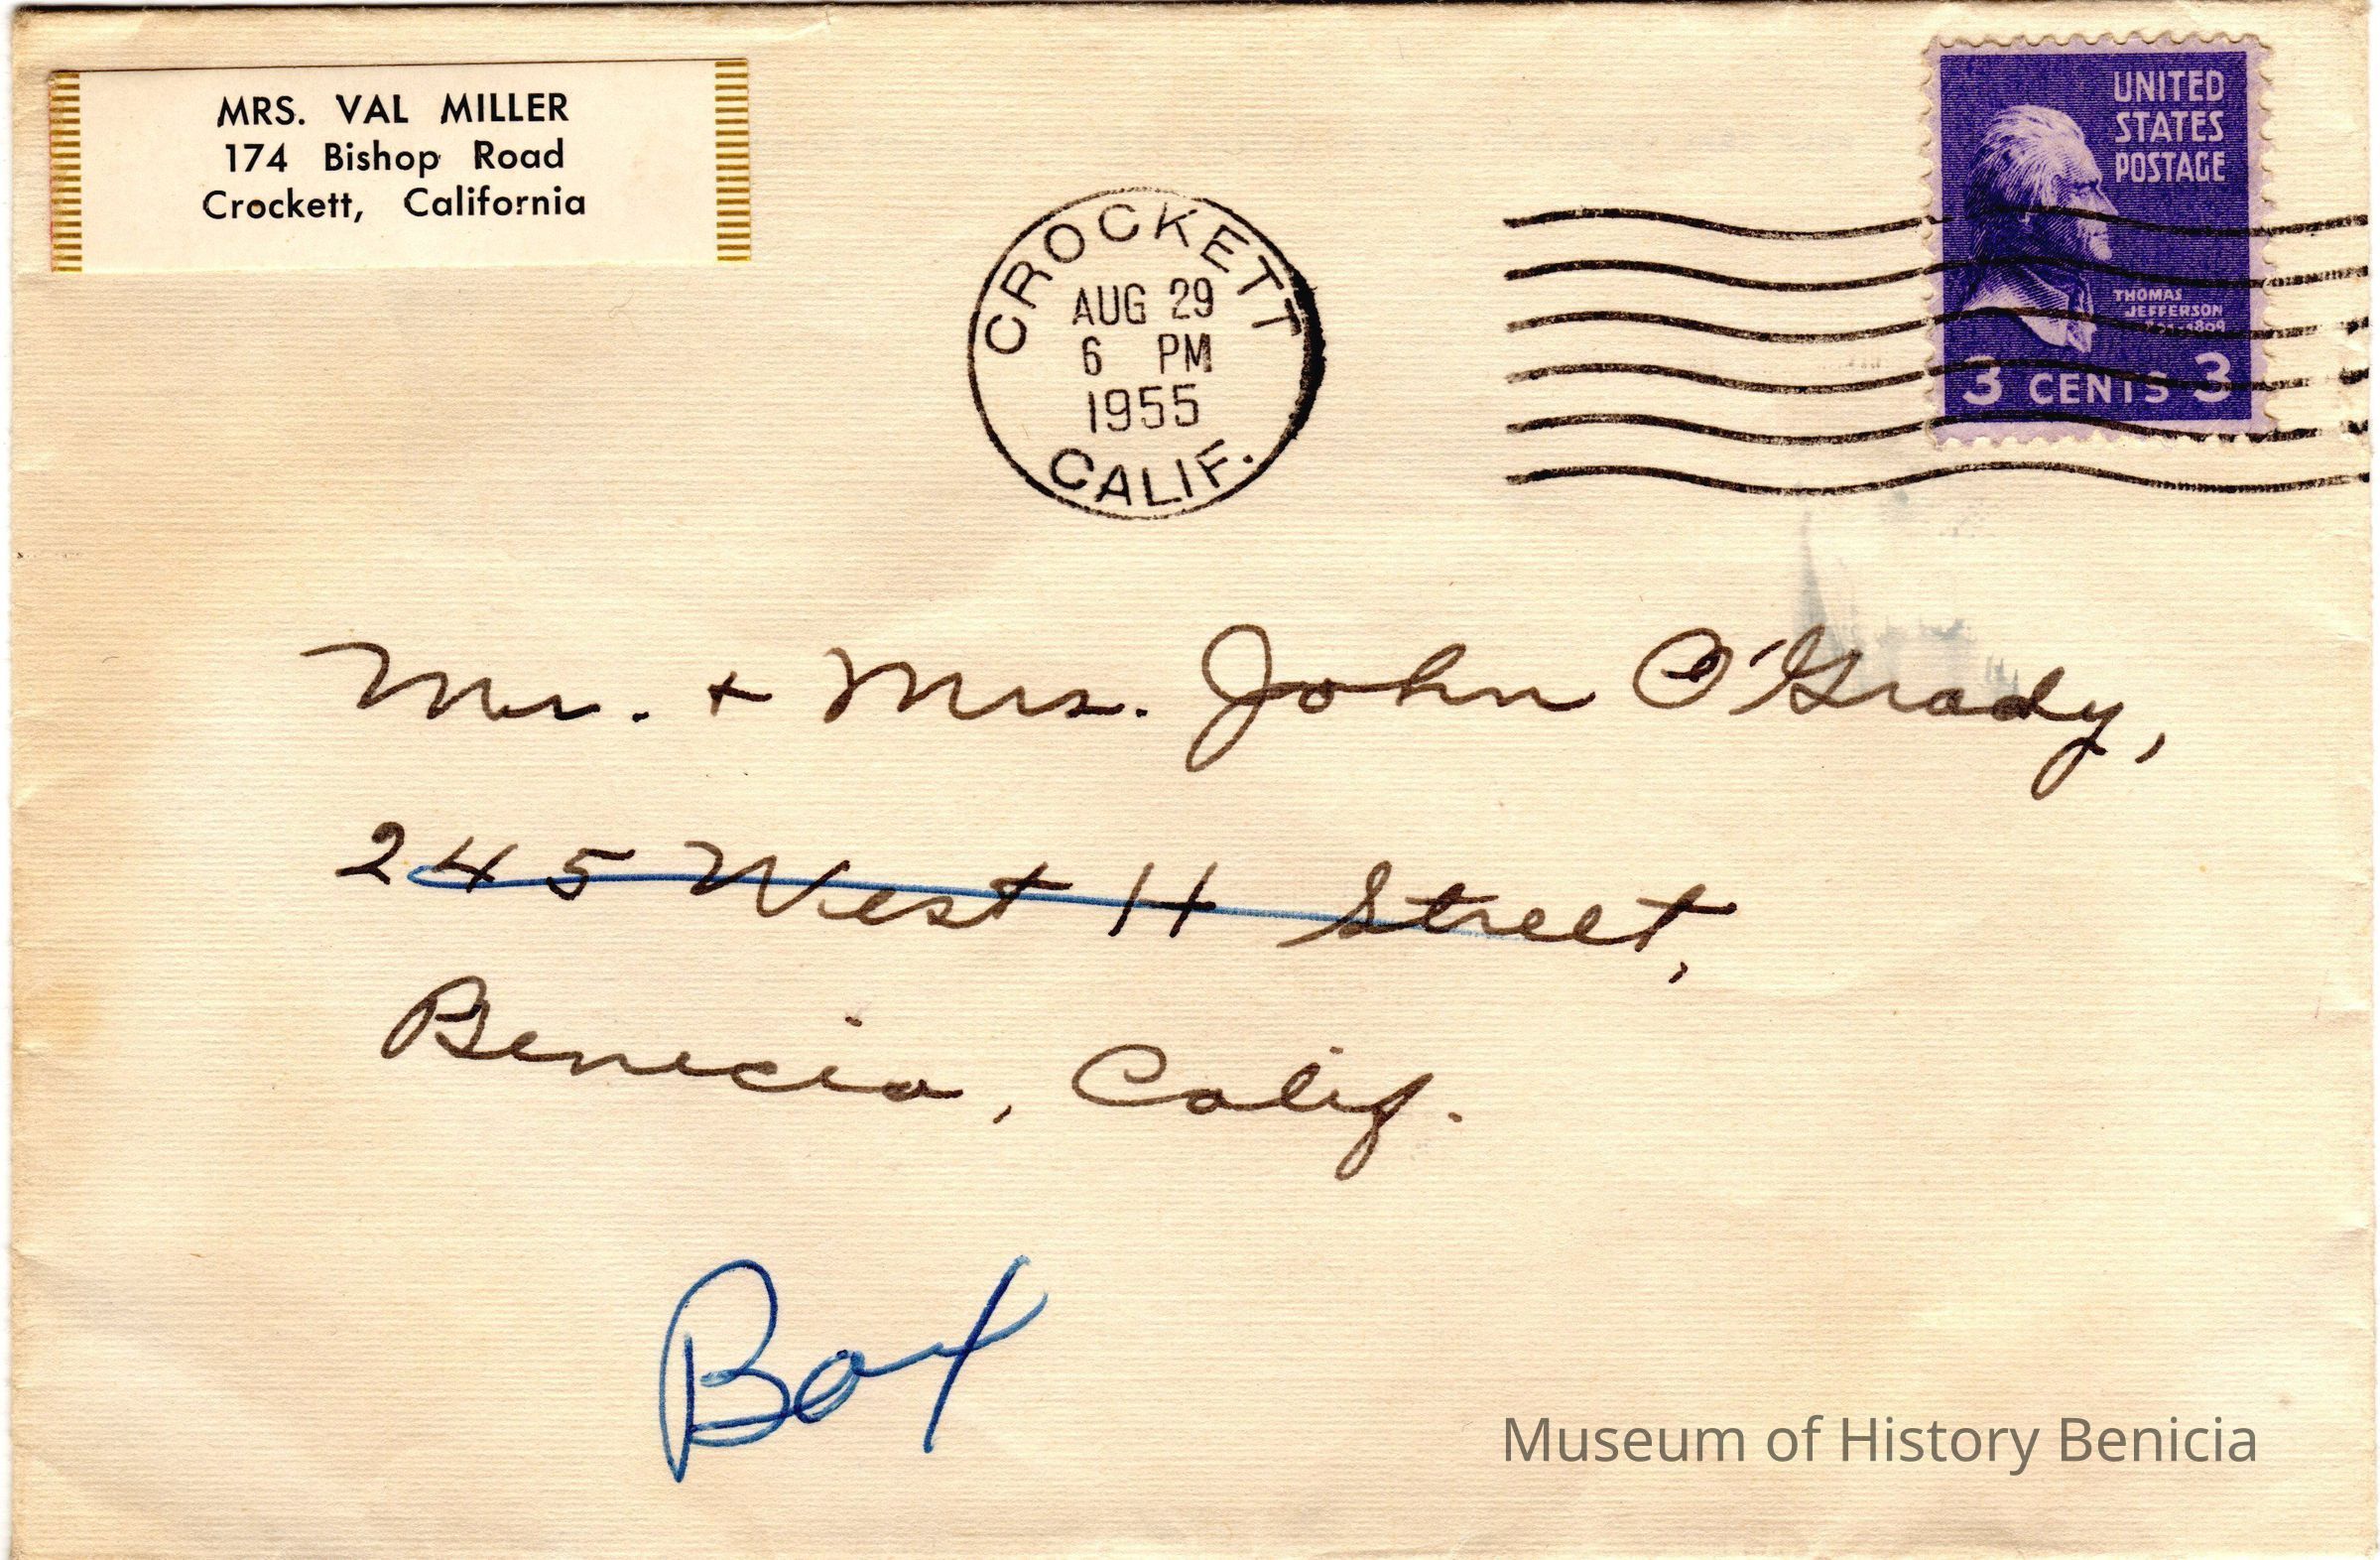 MRS. VAL MILLER
174 Bishop Road
Crockett, California
CROCKETT
AUG 29
6 PM
1955
CALIF.
UNITED
STATES
POSTAGE
THOMAS
JEFFERSON
3 CENTS 3
Mr. + Mrs. John O'Grady,
245 West H Street,
Benicia, Calif.
Box
Museum of History Benicia